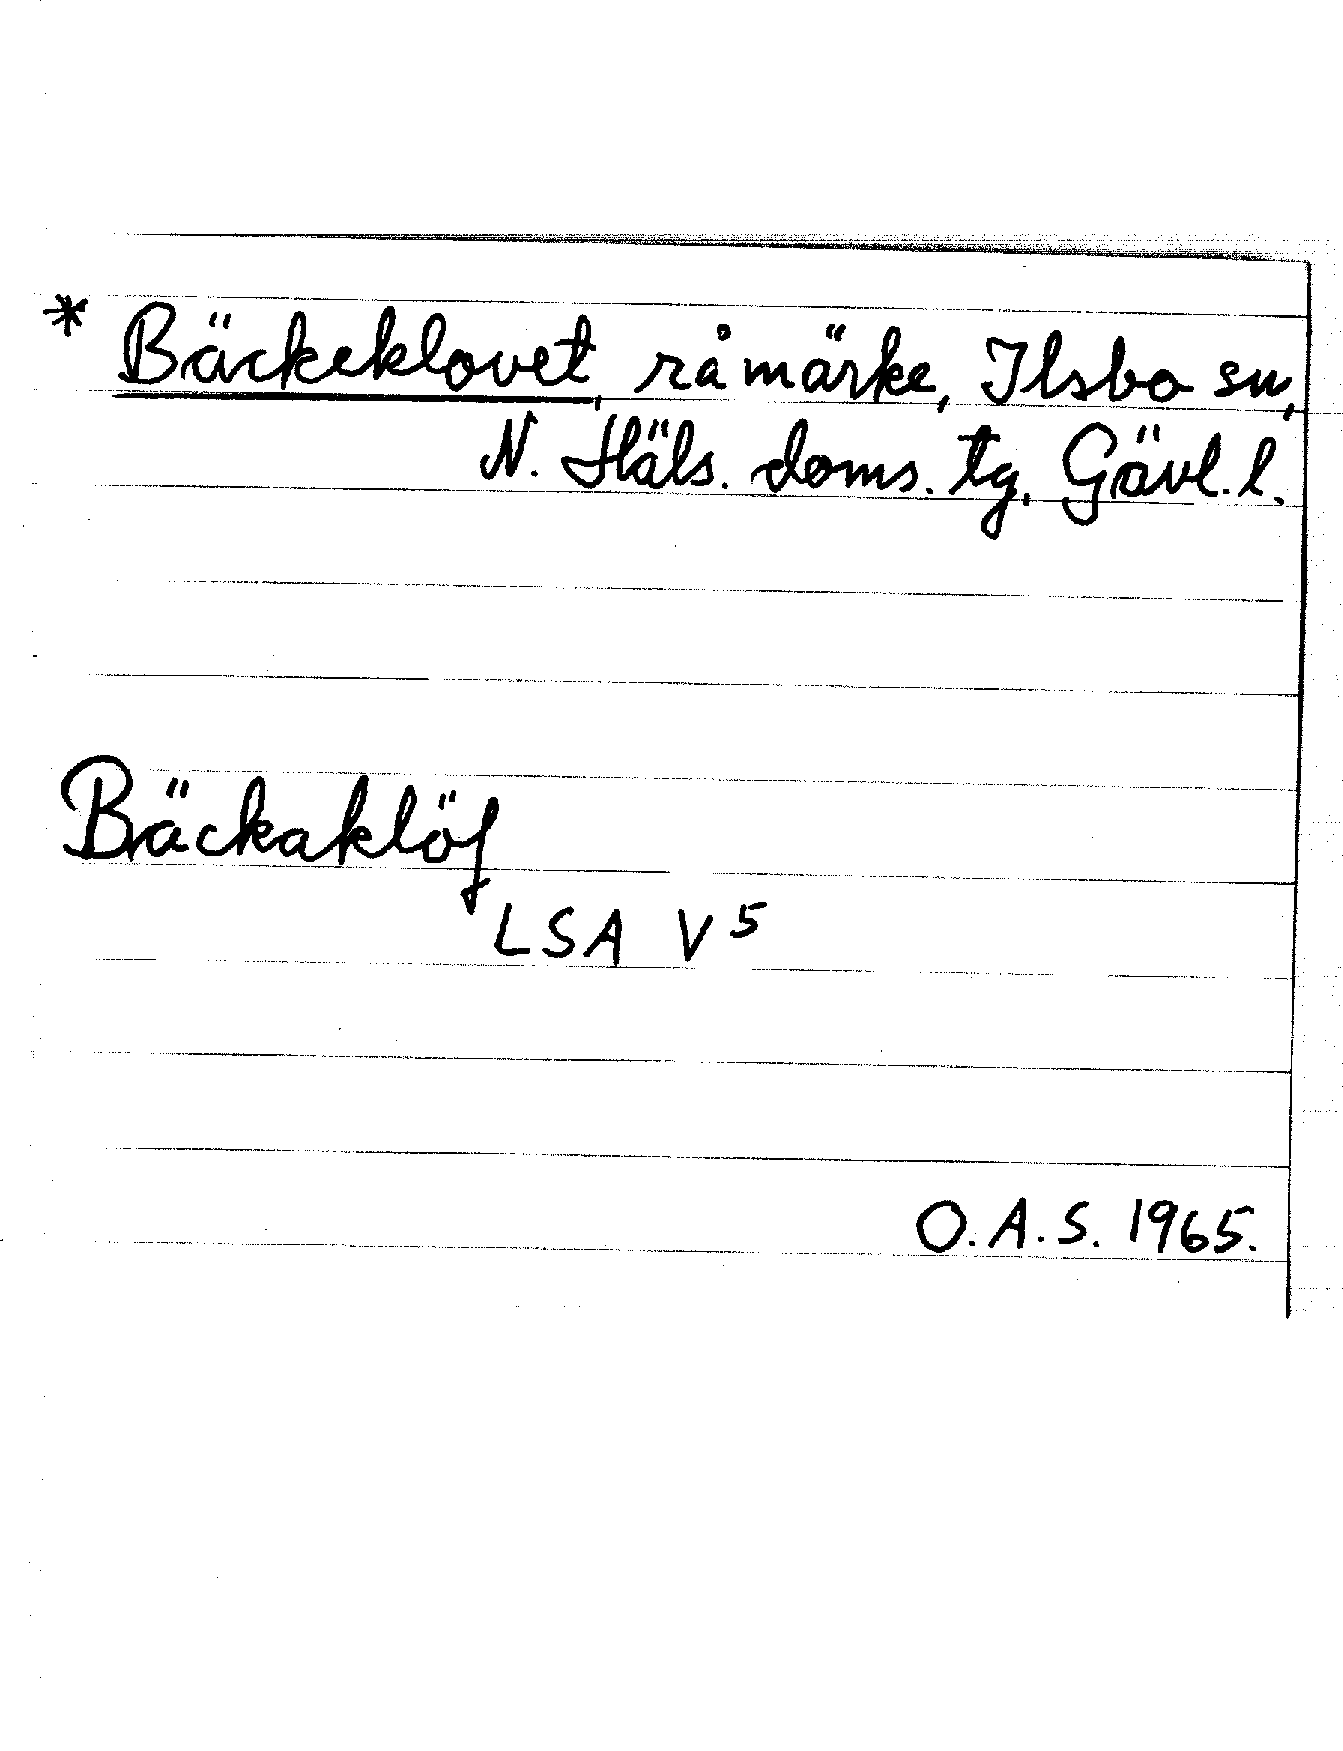 * Bäckeklovet, råmärke, Ilsbo sn,
N. Häls. doms. tg, Gävl. l.
Bäckaklöf
LSA V 5
O. A. S. 1965.